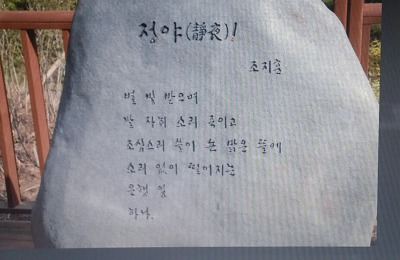 정야(靜夜)!
조지훈
별 빛 받으며
발 자취 소리 죽이고
조심스리 쓸어 논 맑은 뜰에
소리 없이 떨어지는
은행 잎
하나.